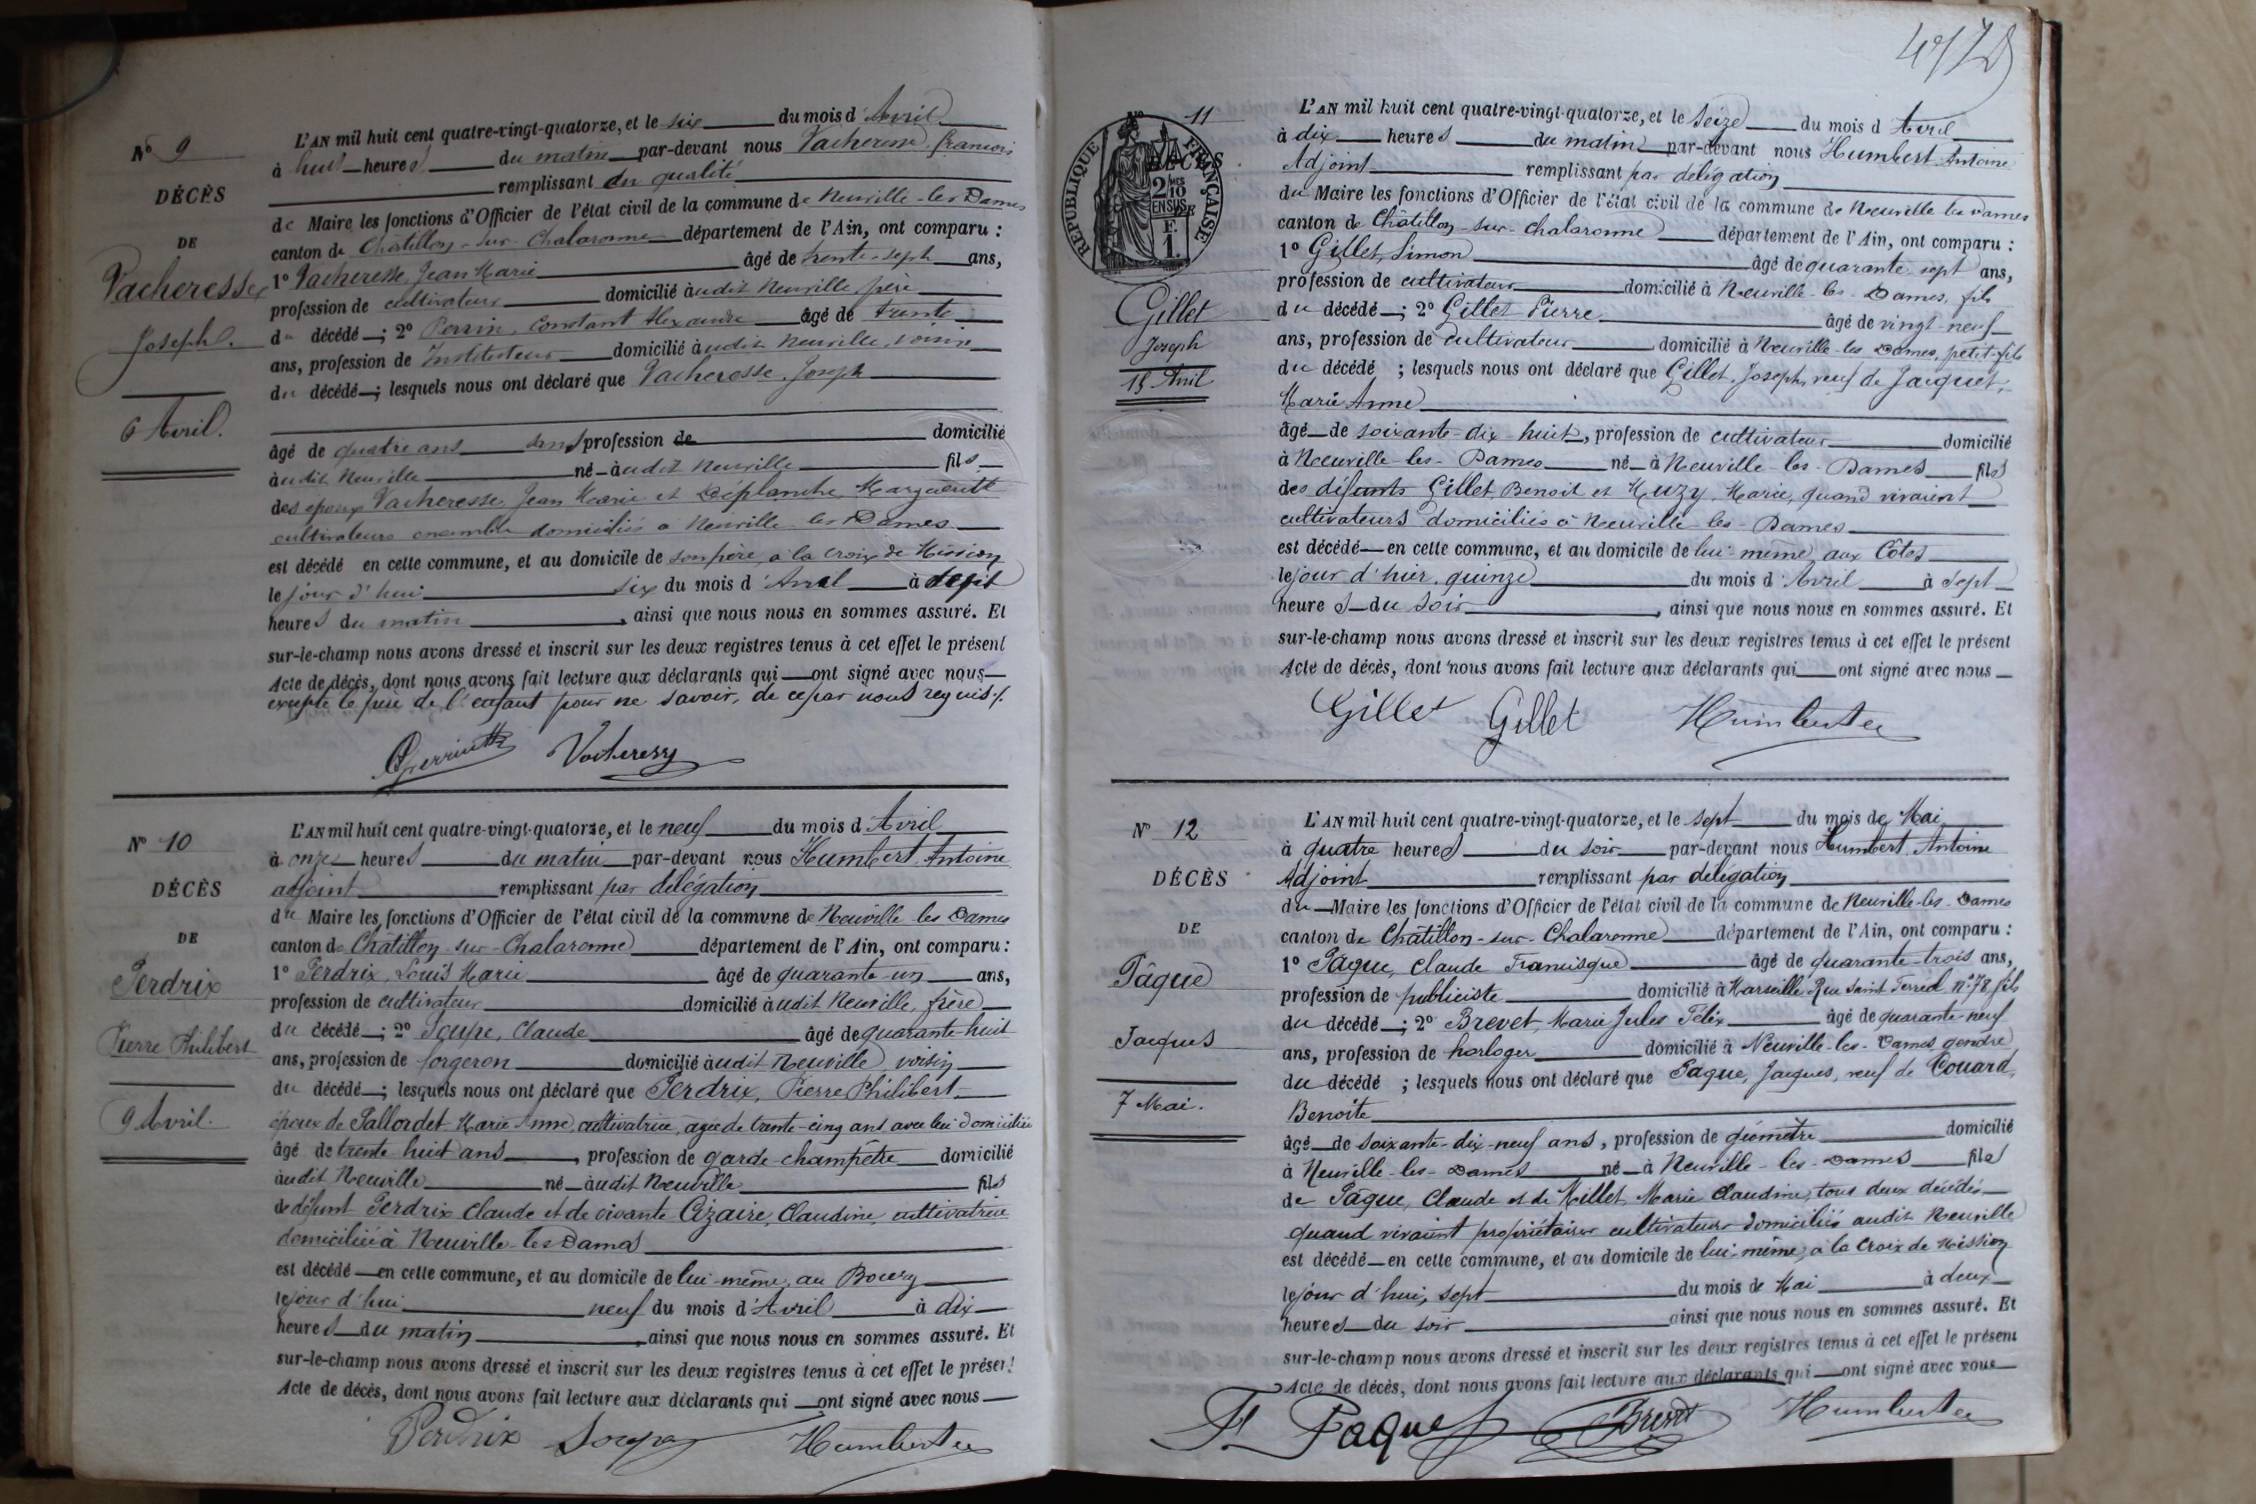 Nº 9
DÉCÈS
DE
Vacheresse
Joseph.
6 Avril.
L'AN mil huit cent quatre-vingt-quatorze, et le six du mois d'Avril
à huit heures du matin par-devant nous Vacheresse françois
remplissant en qualité
de Maire les fonctions d'Officier de l'état civil de la commune de Neuville-les-Dames
canton de Châtillon-sur-Chalaronne département de l'Ain, ont comparu :
1º Vacheresse, Jean Marie âgé de trente-sept ans,
profession de cultivateur domicilié audit Neuville père
du décédé ; 2º Perrin, Constant Alexandre âgé de trente
ans, profession de Instituteur domicilié audit Neuville, voisin
du décédé ; lesquels nous ont déclaré que Vacheresse, Joseph
âgé de quatre ans sans profession de domicilié
audit Neuville né audit Neuville fils
des époux Vacheresse, Jean Marie et Déplanche, Marguerite
cultivateurs ensemble domiciliés à Neuville-les-Dames
est décédé en cette commune, et au domicile de son père, à la croix de Mission
le jour d'hui six du mois d'Avril à sept
heures du matin, ainsi que nous nous en sommes assuré. Et
sur-le-champ nous avons dressé et inscrit sur les deux registres tenus à cet effet le présent
Acte de décès, dont nous avons fait lecture aux déclarants qui ont signé avec nous
excepté le père de l'enfant pour ne savoir, de ce par nous requis./.
Vacheresse
Nº 10
DÉCÈS
DE
Perdrix
Pierre Philibert
9 Avril.
L'AN mil huit cent quatre-vingt-quatorze, et le neuf du mois d'Avril
à onze heures du matin par-devant nous Humbert, Antoine
adjoint remplissant par délégation
du Maire les fonctions d'Officier de l'état civil de la commune de Neuville-les-Dames
canton de Châtillon-sur-Chalaronne département de l'Ain, ont comparu :
1º Perdrix, Louis Marie âgé de quarante-un ans,
profession de cultivateur domicilié audit Neuville, frère
du décédé ; 2º Soupe, Claude âgé de quarante-huit
ans, profession de forgeron domicilié audit Neuville voisin
du décédé ; lesquels nous ont déclaré que Perdrix, Pierre Philibert
époux de Pallordet Marie Anne, cultivatrice, agée de trente-cinq ans avec lui domiciliée
âgé de trente huit ans, profession de garde-champêtre domicilié
audit Neuville né audit Neuville fils
de défunt Perdrix Claude et de vivante Azaire, Claudine, cultivatrice
domiciliée à Neuville-les-Dames
est décédé en cette commune, et au domicile de lui-même, au Bourg
le jour d'hui neuf du mois d'Avril à dix
heures du matin, ainsi que nous nous en sommes assuré. Et
sur-le-champ nous avons dressé et inscrit sur les deux registres tenus à cet effet le présent
Acte de décès, dont nous avons fait lecture aux déclarants qui ont signé avec nous
Perdrix Soupe Humbert
Nº 11
RÉPUBLIQUE FRANÇAISE
DÉCÈS
2 MES 10 EN SUS
DE
F. 1.
Gillet
Joseph
15 Avril
L'AN mil huit cent quatre-vingt-quatorze, et le seize du mois d'Avril
à dix heures du matin par-devant nous Humbert Antoine
Adjoint remplissant par délégation
du Maire les fonctions d'Officier de l'état civil de la commune de Neuville-les-Dames
canton de Châtillon-sur-Chalaronne département de l'Ain, ont comparu :
1º Gillet, Simon âgé de quarante sept ans,
profession de cultivateur domicilié à Neuville-les-Dames, fils
du décédé ; 2º Gillet Pierre âgé de vingt-neuf
ans, profession de cultivateur domicilié à Neuville-les-Dames, petit-fils
du décédé ; lesquels nous ont déclaré que Gillet, Joseph, veuf de Jacquet
Marie Anne
âgé de soixante-dix-huit, profession de cultivateur domicilié
à Neuville-les-Dames né à Neuville-les-Dames fils
des défunts Gillet, Benoit et Muzy, Marie, quand vivaient
cultivateurs domiciliés à Neuville-les-Dames
est décédé en cette commune, et au domicile de lui-même aux Côtes
le jour d'hier, quinze du mois d'Avril à sept
heures du soir, ainsi que nous nous en sommes assuré. Et
sur-le-champ nous avons dressé et inscrit sur les deux registres tenus à cet effet le présent
Acte de décès, dont nous avons fait lecture aux déclarants qui ont signé avec nous
Gillet Gillet Humbert
Nº 12
DÉCÈS
DE
Pâque
Jacques
7 Mai.
L'AN mil huit cent quatre-vingt-quatorze, et le sept du mois de Mai
à quatre heures du soir par-devant nous Humbert, Antoine
Adjoint remplissant par délégation
du Maire les fonctions d'Officier de l'état civil de la commune de Neuville-les-Dames
canton de Châtillon-sur-Chalaronne département de l'Ain, ont comparu :
1º Pâque, Claude Francisque âgé de quarante-trois ans,
profession de publiciste domicilié à Marseille, Rue Saint Ferréol nº 78 fils
du décédé ; 2º Brevet, Marie Jules Félix âgé de quarante-neuf
ans, profession de horloger domicilié à Neuville-les-Dames gendre
du décédé ; lesquels nous ont déclaré que Pâque, Jacques, veuf de Couard,
Benoîte
âgé de soixante-dix-neuf ans, profession de géomètre domicilié
à Neuville-les-Dames né à Neuville-les-Dames fils
de Pâque, Claude et de Millet, Marie Claudine, tous deux décédés
quand vivaient propriétaires cultivateurs domiciliés audit Neuville
est décédé en cette commune, et au domicile de lui-même, à la Croix de Mission
le jour d'hui, sept du mois de Mai à deux
heures du soir ainsi que nous nous en sommes assuré. Et
sur-le-champ nous avons dressé et inscrit sur les deux registres tenus à cet effet le présent
Acte de décès, dont nous avons fait lecture aux déclarants qui ont signé avec nous
F. Paque Brevet Humbert